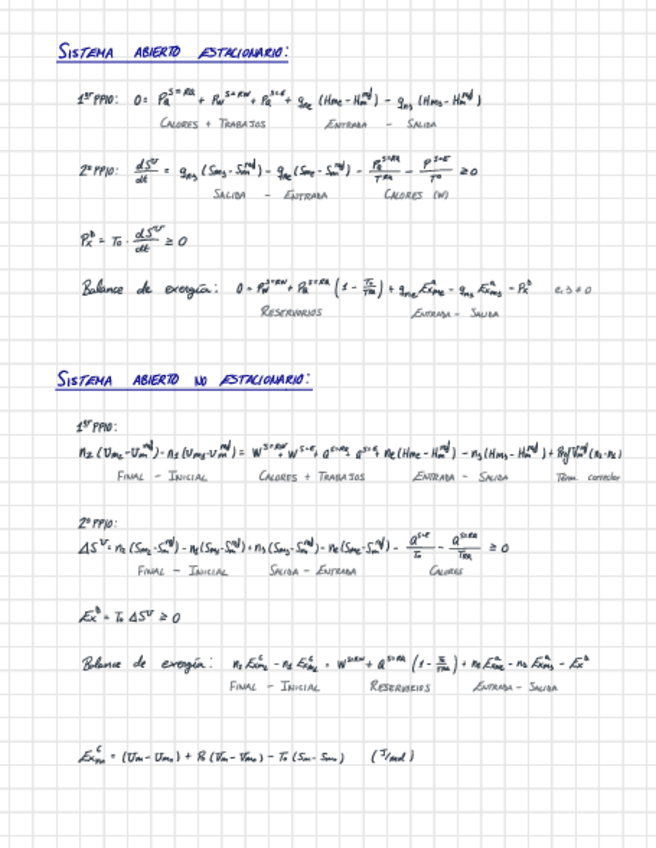 SISTEMA ABIERTO ESTACIONARIO:
1er PPIO: 0 = P_Q^{S↔RQ} + P_W^{S↔RW} + P_Q^{S↔E} + q_ne (H_me - H_m^{ref}) - q_ns (H_ms - H_m^{ref})
CALORES + TRABAJOS ENTRADA - SALIDA
2º PPIO: dS^U/dt = q_ns (S_ms - S_m^{ref}) - q_ne (S_me - S_m^{ref}) - P_Q^{S↔RQ}/T_RQ - P^{S↔E}/T_0 ≥ 0
SALIDA - ENTRADA CALORES (W)
P_x^D = T_0 · dS^U/dt ≥ 0
Balance de exergía: 0 = P_W^{S↔RW} + P_Q^{S↔RQ} (1 - T_0/T_RQ) + q_ne Ex_me^a - q_ns Ex_ms^a - P_x^D e,s ≠ 0
RESERVORIOS ENTRADA - SALIDA
SISTEMA ABIERTO NO ESTACIONARIO:
1er PPIO:
n_2 (U_m2 - U_m^{ref}) - n_1 (U_m1 - U_m^{ref}) = W^{S↔RW} + W^{S↔E} + Q^{S↔RQ} + Q^{S↔E} + n_e (H_me - H_m^{ref}) - n_s (H_ms - H_m^{ref}) +
FINAL - INICIAL CALORES + TRABAJOS ENTRADA - SALIDA Térm. corrector
2º PPIO:
ΔS^U = n_2 (S_m2 - S_m^{ref}) - n_1 (S_m1 - S_m^{ref}) + n_s (S_ms - S_m^{ref}) - n_e (S_me - S_m^{ref}) - Q^{S↔E}/T_0 - Q^{S↔RQ}/T_RQ ≥ 0
FINAL - INICIAL SALIDA - ENTRADA CALORES
Ex^D = T_0 ΔS^U ≥ 0
Balance de exergía: n_2 Ex_m2^c - n_1 Ex_m1^c = W^{S↔RW} + Q^{S↔RQ} (1 - T_0/T_RQ) + n_e Ex_me^a - n_s Ex_ms^a - Ex^D
FINAL - INICIAL RESERVORIOS ENTRADA - SALIDA
Ex_m^c = (U_m - U_m0) + P_0 (V_m - V_m0) - T_0 (S_m - S_m0) (J/mol)